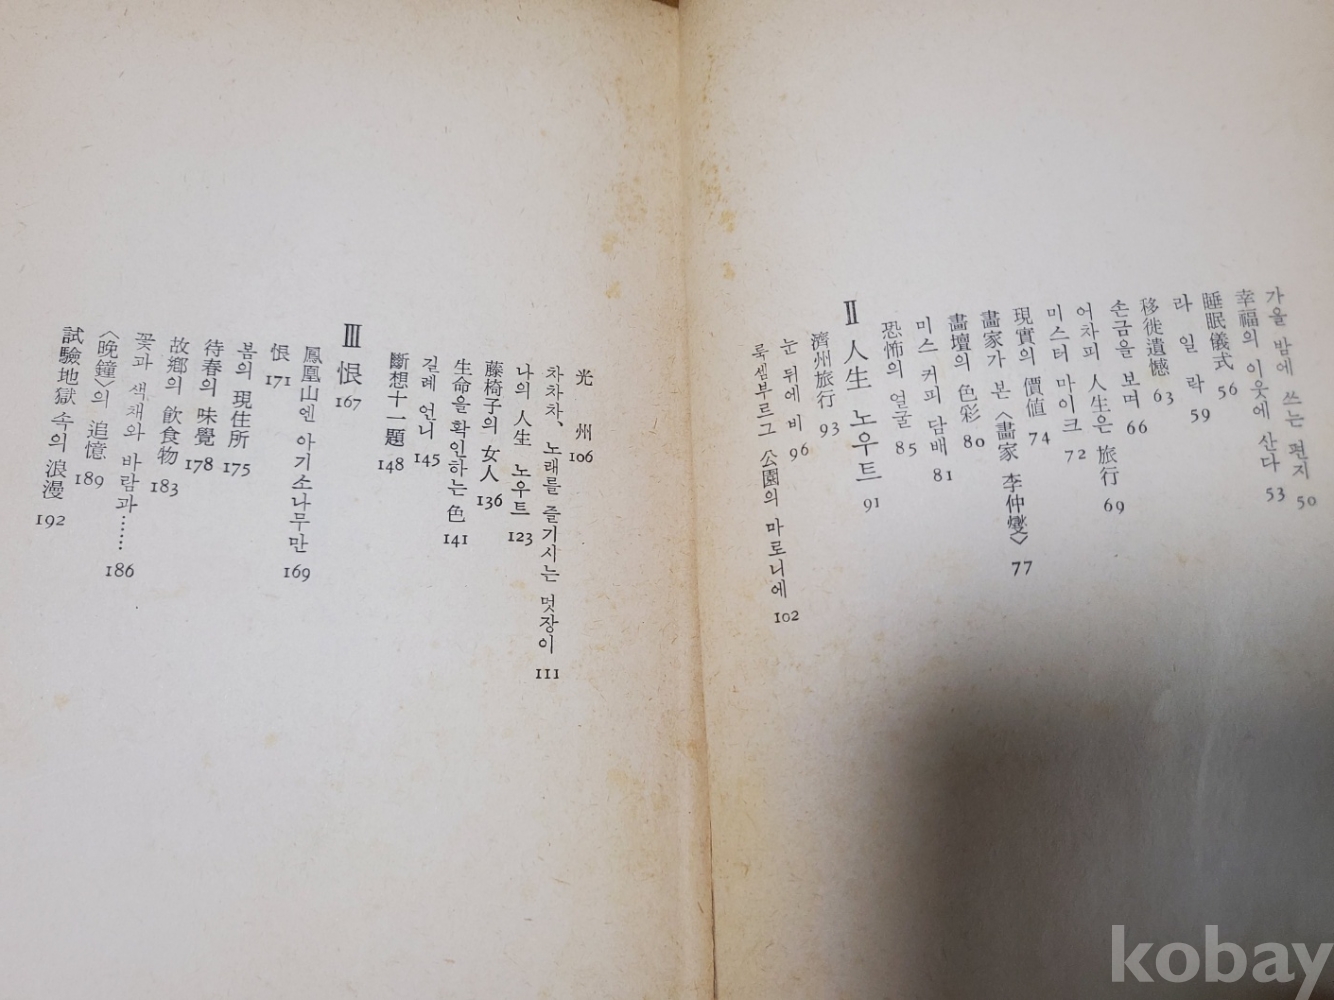 가을 밤에 쓰는 편지 50
幸福의 이웃에 산다 53
睡眠儀式 56
라일락 59
移徙遺憾 63
손금을 보며 66
어차피 人生은 旅行 69
미스터 마이크 72
現實의 價値 74
畫家가 본 〈畫家 李仲燮〉 77
畫壇의 色彩 80
미스 커피 담배 81
恐怖의 얼굴 85
Ⅱ 人生 노우트 91
濟州旅行 93
눈 뒤에 비 96
룩셈부르그 公園의 마로니에 102
光州 106
차차차、노래를 즐기시는 멋장이 111
나의 人生 노우트 123
藤椅子의 女人 136
生命을 확인하는 色 141
길례 언니 145
斷想十一題 148
Ⅲ 恨 167
鳳凰山엔 아기소나무만 169
恨 171
봄의 現住所 175
待春의 味覺 178
故鄕의 飮食物 183
꽃과 색채와 바람과…… 186
〈晩鐘〉의 追憶 189
試驗地獄 속의 浪漫 192
kobay